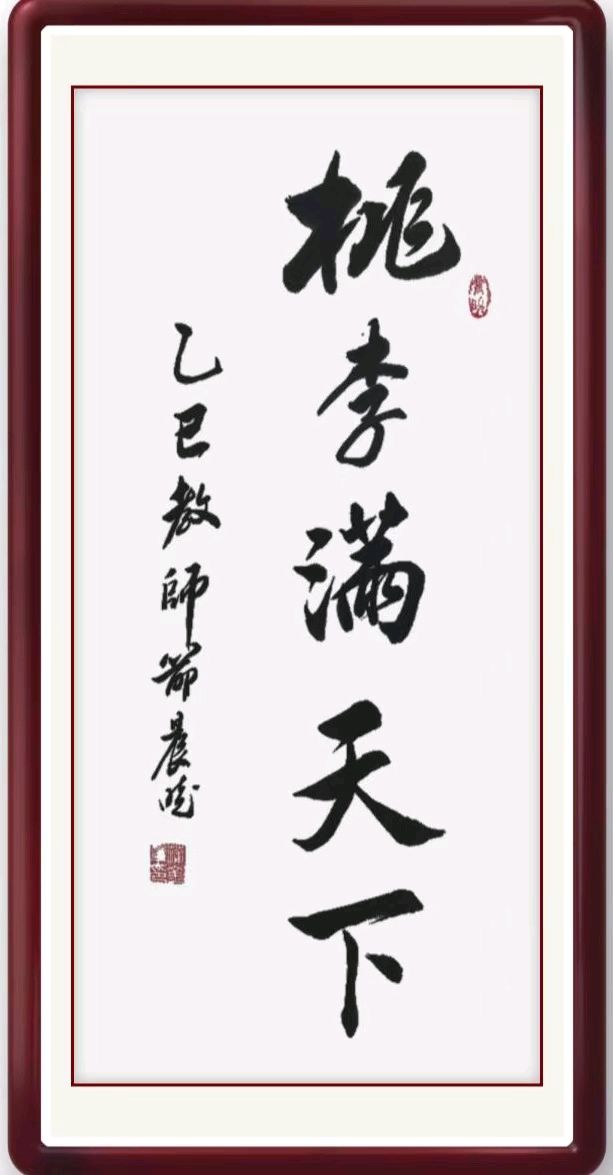 桃李满天下
乙巳教師節晨晓